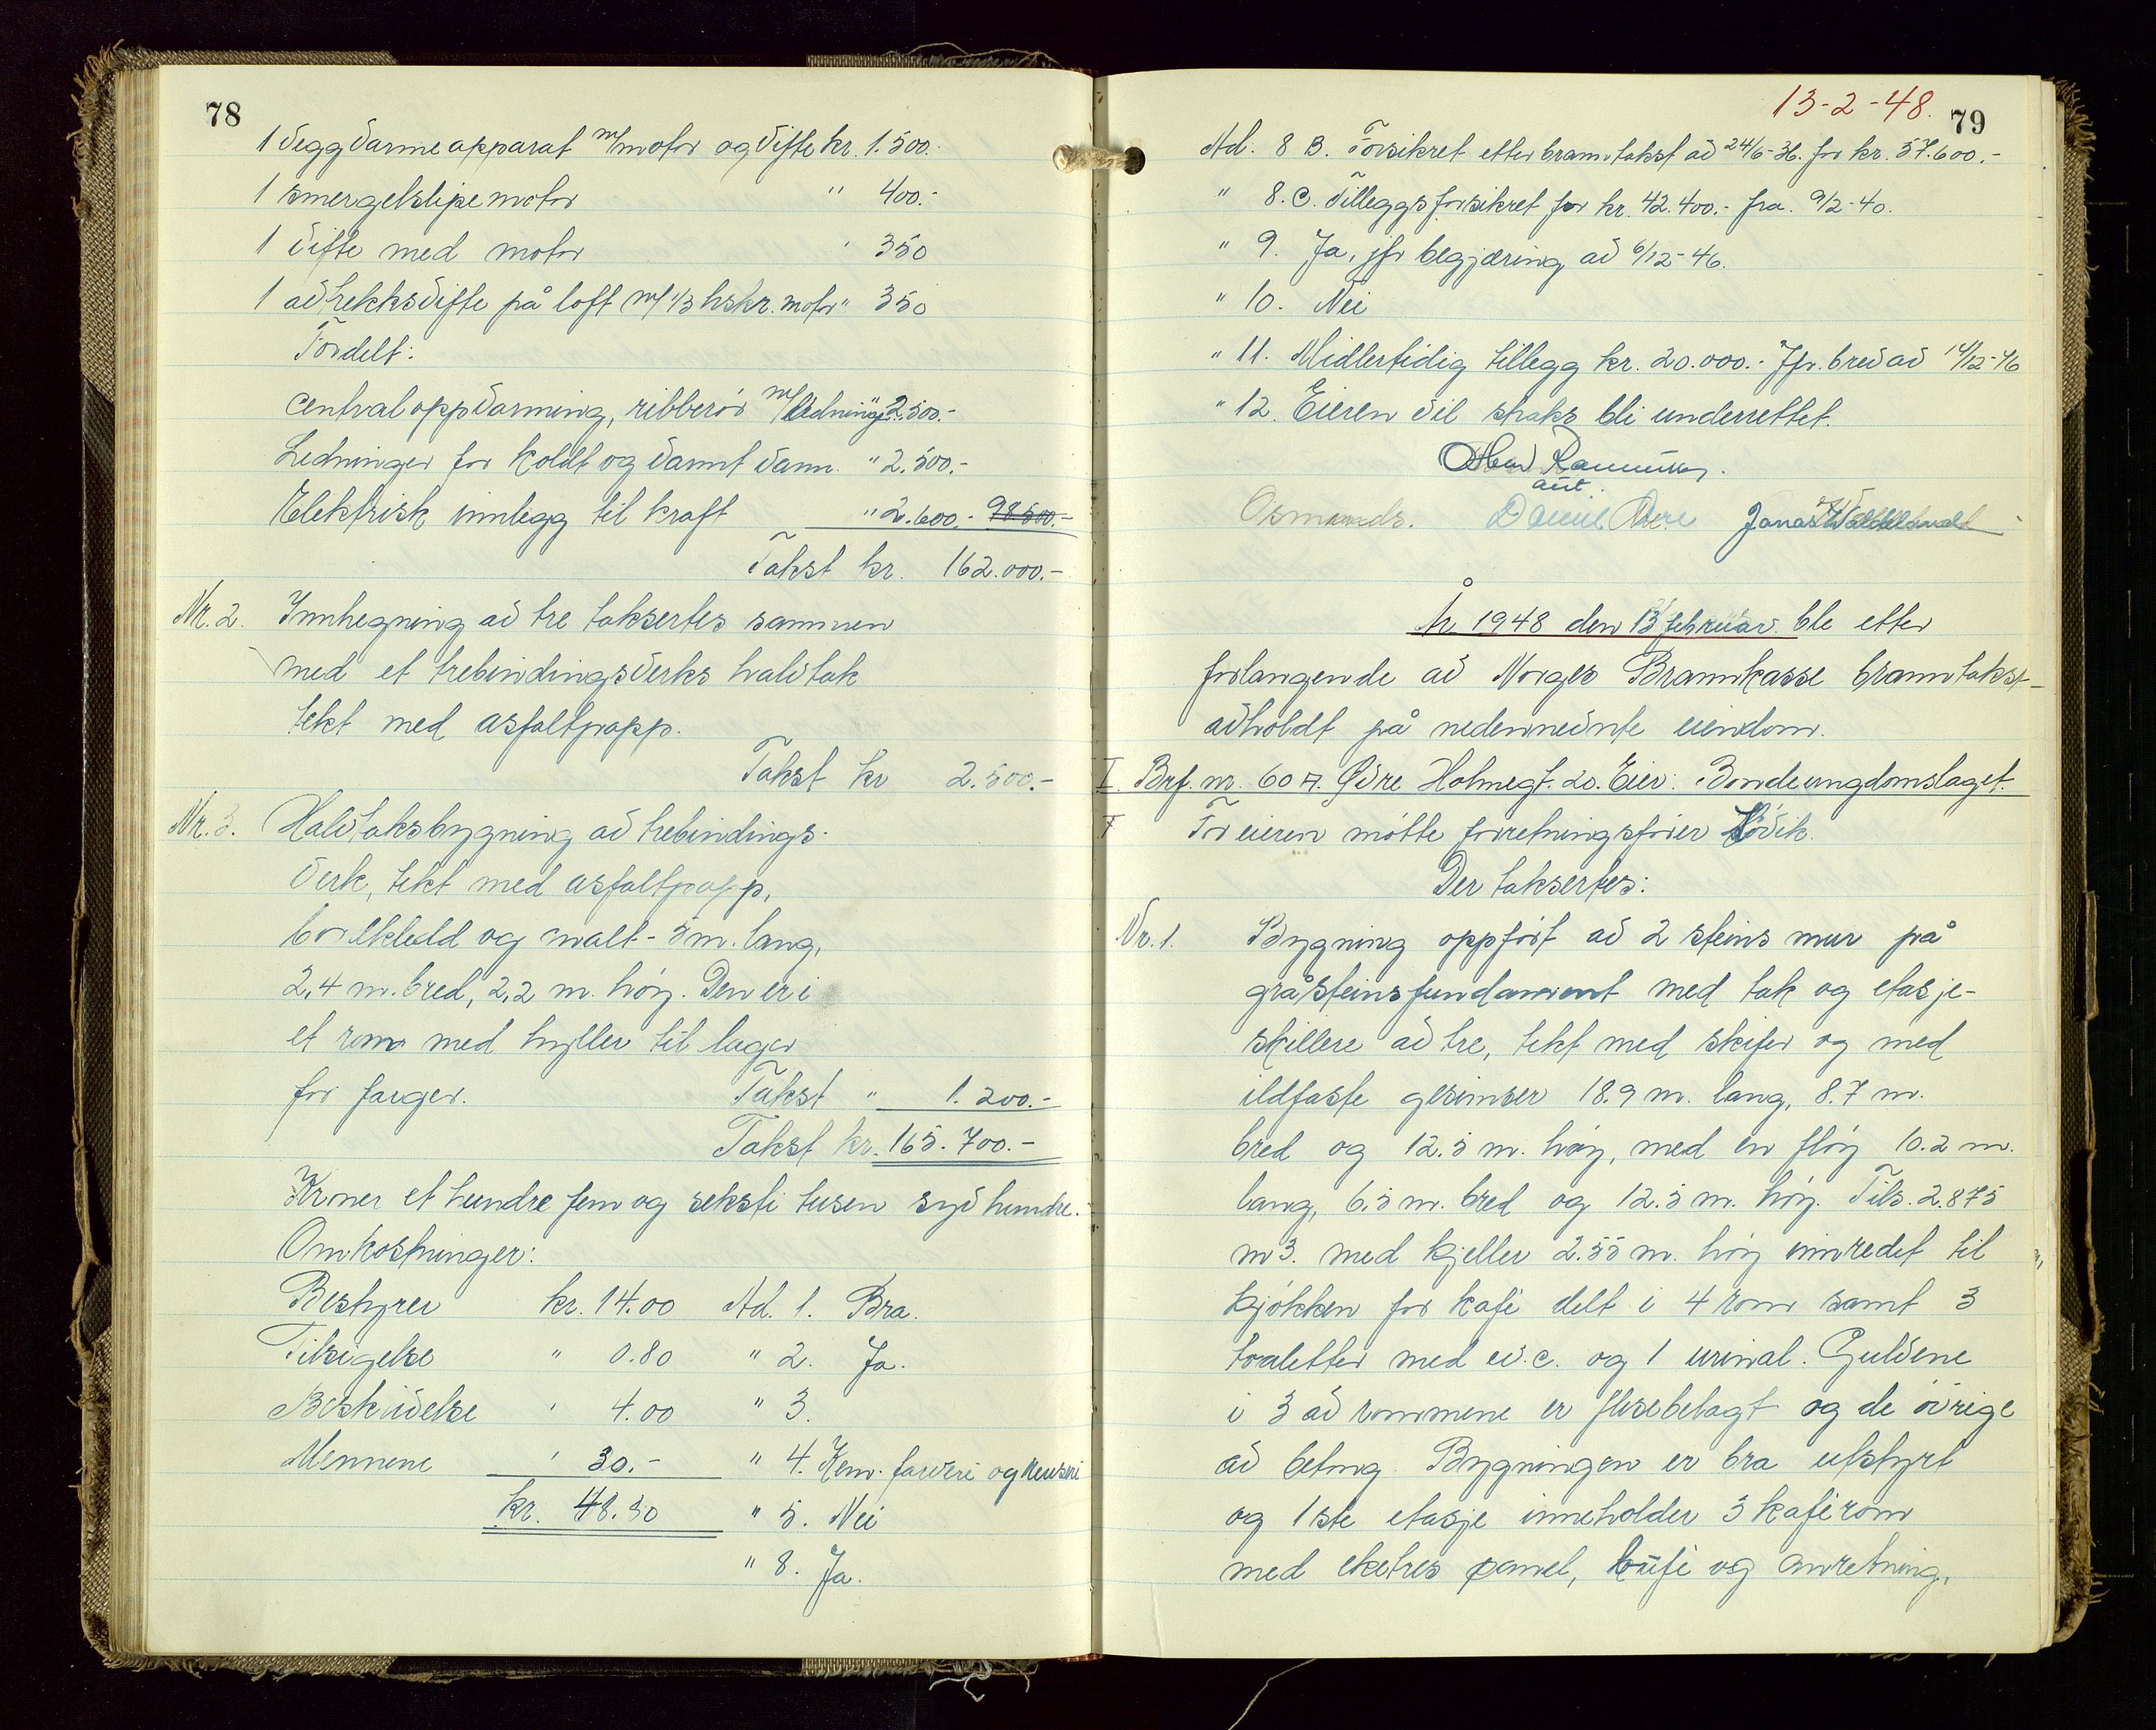 78
1 veggvarmeapparat m/motor og vifte kr. 1.500.-
1 smergelslipemotor " 400.-
1 vifte med motor " 350
1 avtrekksvifte på loft m/ 1/3 hskr. motor " 350
Fordelt:
Centraloppvarming, ribberør m/ledninger " 2.500.-
Ledninger for koldt og varmt vann. " 2.500.-
Elektrisk innlegg til kraft " 2.600.- 98.500.-
Takst kr. 162.000.-
Nr. 2. Innhegning av tre taksertes sammen
med et trebindingsverks halvtak
tekt med asfaltpapp.
Takst kr 2.500.-
Nr. 3. Halvtaksbygning av trebindings-
verk, tekt med asfaltpapp,
bordkledd og malt - 5 m. lang,
2,4 m. bred, 2,2 m. høy. Den er i
et rom med hyller til lager
for farger. Takst " 1.200.-
Takst kr. 165.700.-
Kroner et hundre fem og seksti tusen syv hundre.-
Omkostninger:
Bestyrer kr. 14.00 Ad. 1. Bra.
Tilsigelse " 0.80 " 2. Ja.
Beskrivelse " 4.00 " 3.
Mennene " 30.- " 4. Kem. farveri og renseri
kr. 48.80 " 5. Nei
" 8. Ja.
13-2-48.
79
Ad. 8 B. Forsikret etter branntakst av 24/6-36. for kr. 57.600.-
" 8. C. Tilleggsforsikret for kr. 42.400.- fra. 9/2-40.
" 9. Ja, jfr begjæring av 6/12-46.
" 10. Nei
" 11. Midlertidig tillegg kr. 20.000.- Jfr. brev av 14/12-46
" 12. Eieren vil straks bli underrettet.
Rasmussen.
aut.
Osmunds. Daniel Jonas Waldeland
År 1948 den 13 februar. ble etter
forlangende av Norges Brannkasse branntakst
avholdt på nedennevnte eiendom.
I Brf. nr. 607. Øvre Holmegt. 20. Eier: Bondeungdomslaget.
For eieren møtte forretningsfører Høvik.
Der taksertes:
Nr. 1. Bygning oppført av 2 steins mur på
gråsteinsfundament med tak og etasje-
skillere av tre, tekt med skifer og med
ildfaste gesimser 18.9 m. lang, 8.7 m.
bred og 12.5 m. høy, med en fløy 10.2 m.
lang, 6.5 m. bred og 12.5 m. høy. Tils. 2.875
m3. med kjeller 2.55 m. høy innredet til
kjøkken for kafe delt i 4 rom samt 3
toaletter med w.c. og 1 urinal. Gulvene
i 3 av rommene er flisebelagt og de øvrige
av betong. Bygningen er bra utstyrt
og 1ste etasje inneholder 3 kaferom
med eketres panel, bufe og anretning,